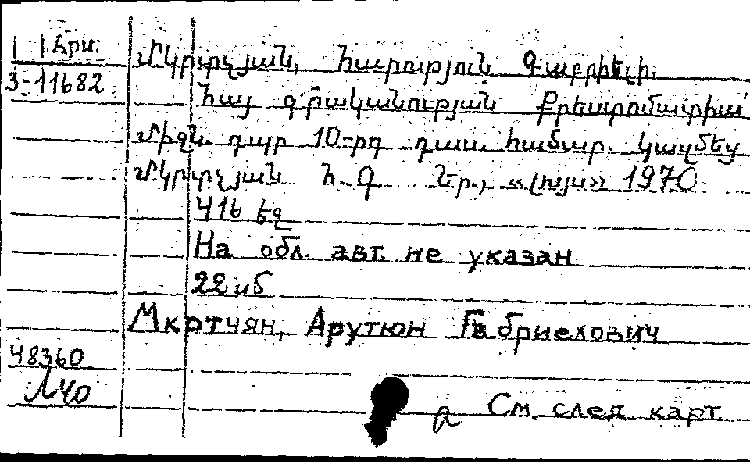 Арм.
3-11682
Մկրտչյան, Հարություն Գաբրիելի.
Հայ գրականության քրեստոմատիա
Միջն. դպր 10-րդ դաս. համար. Կազմեց
Մկրտչյան Հ. Գ. Եր., «Լույս» 1970.
416 եջ
На обл. авт. не указан
22 иб
Мкртчян, Арутюн Габриелович
48360
См. след. карт.